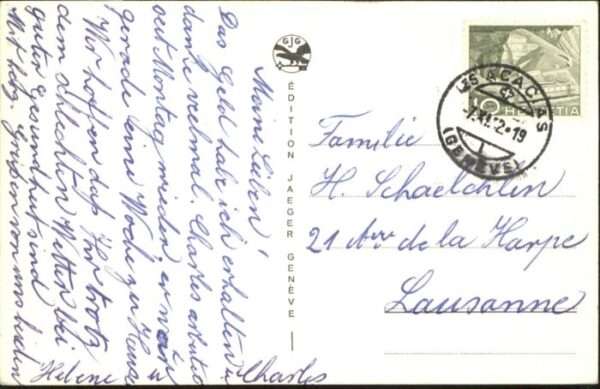 Meine Lieben!
Das Geld habe ich erhalten u.
danke vielmal. Charles arbeitet
seit Montag wieder, er wäre
gerade eine Woche zu Hause
Wir hoffen dass Ihr trotz
dem schlechten Wetter bei
guter Gesundheit sind
Mit hzg. von uns beiden
Helene u
Charles
GJG
ÉDITION JAEGER GENÈVE
10 HELVETIA
LES ACACIAS
XI.52-19
(GENÈVE)
Familie
H. Schaelchlin
21 Ave de la Harpe
Lausanne